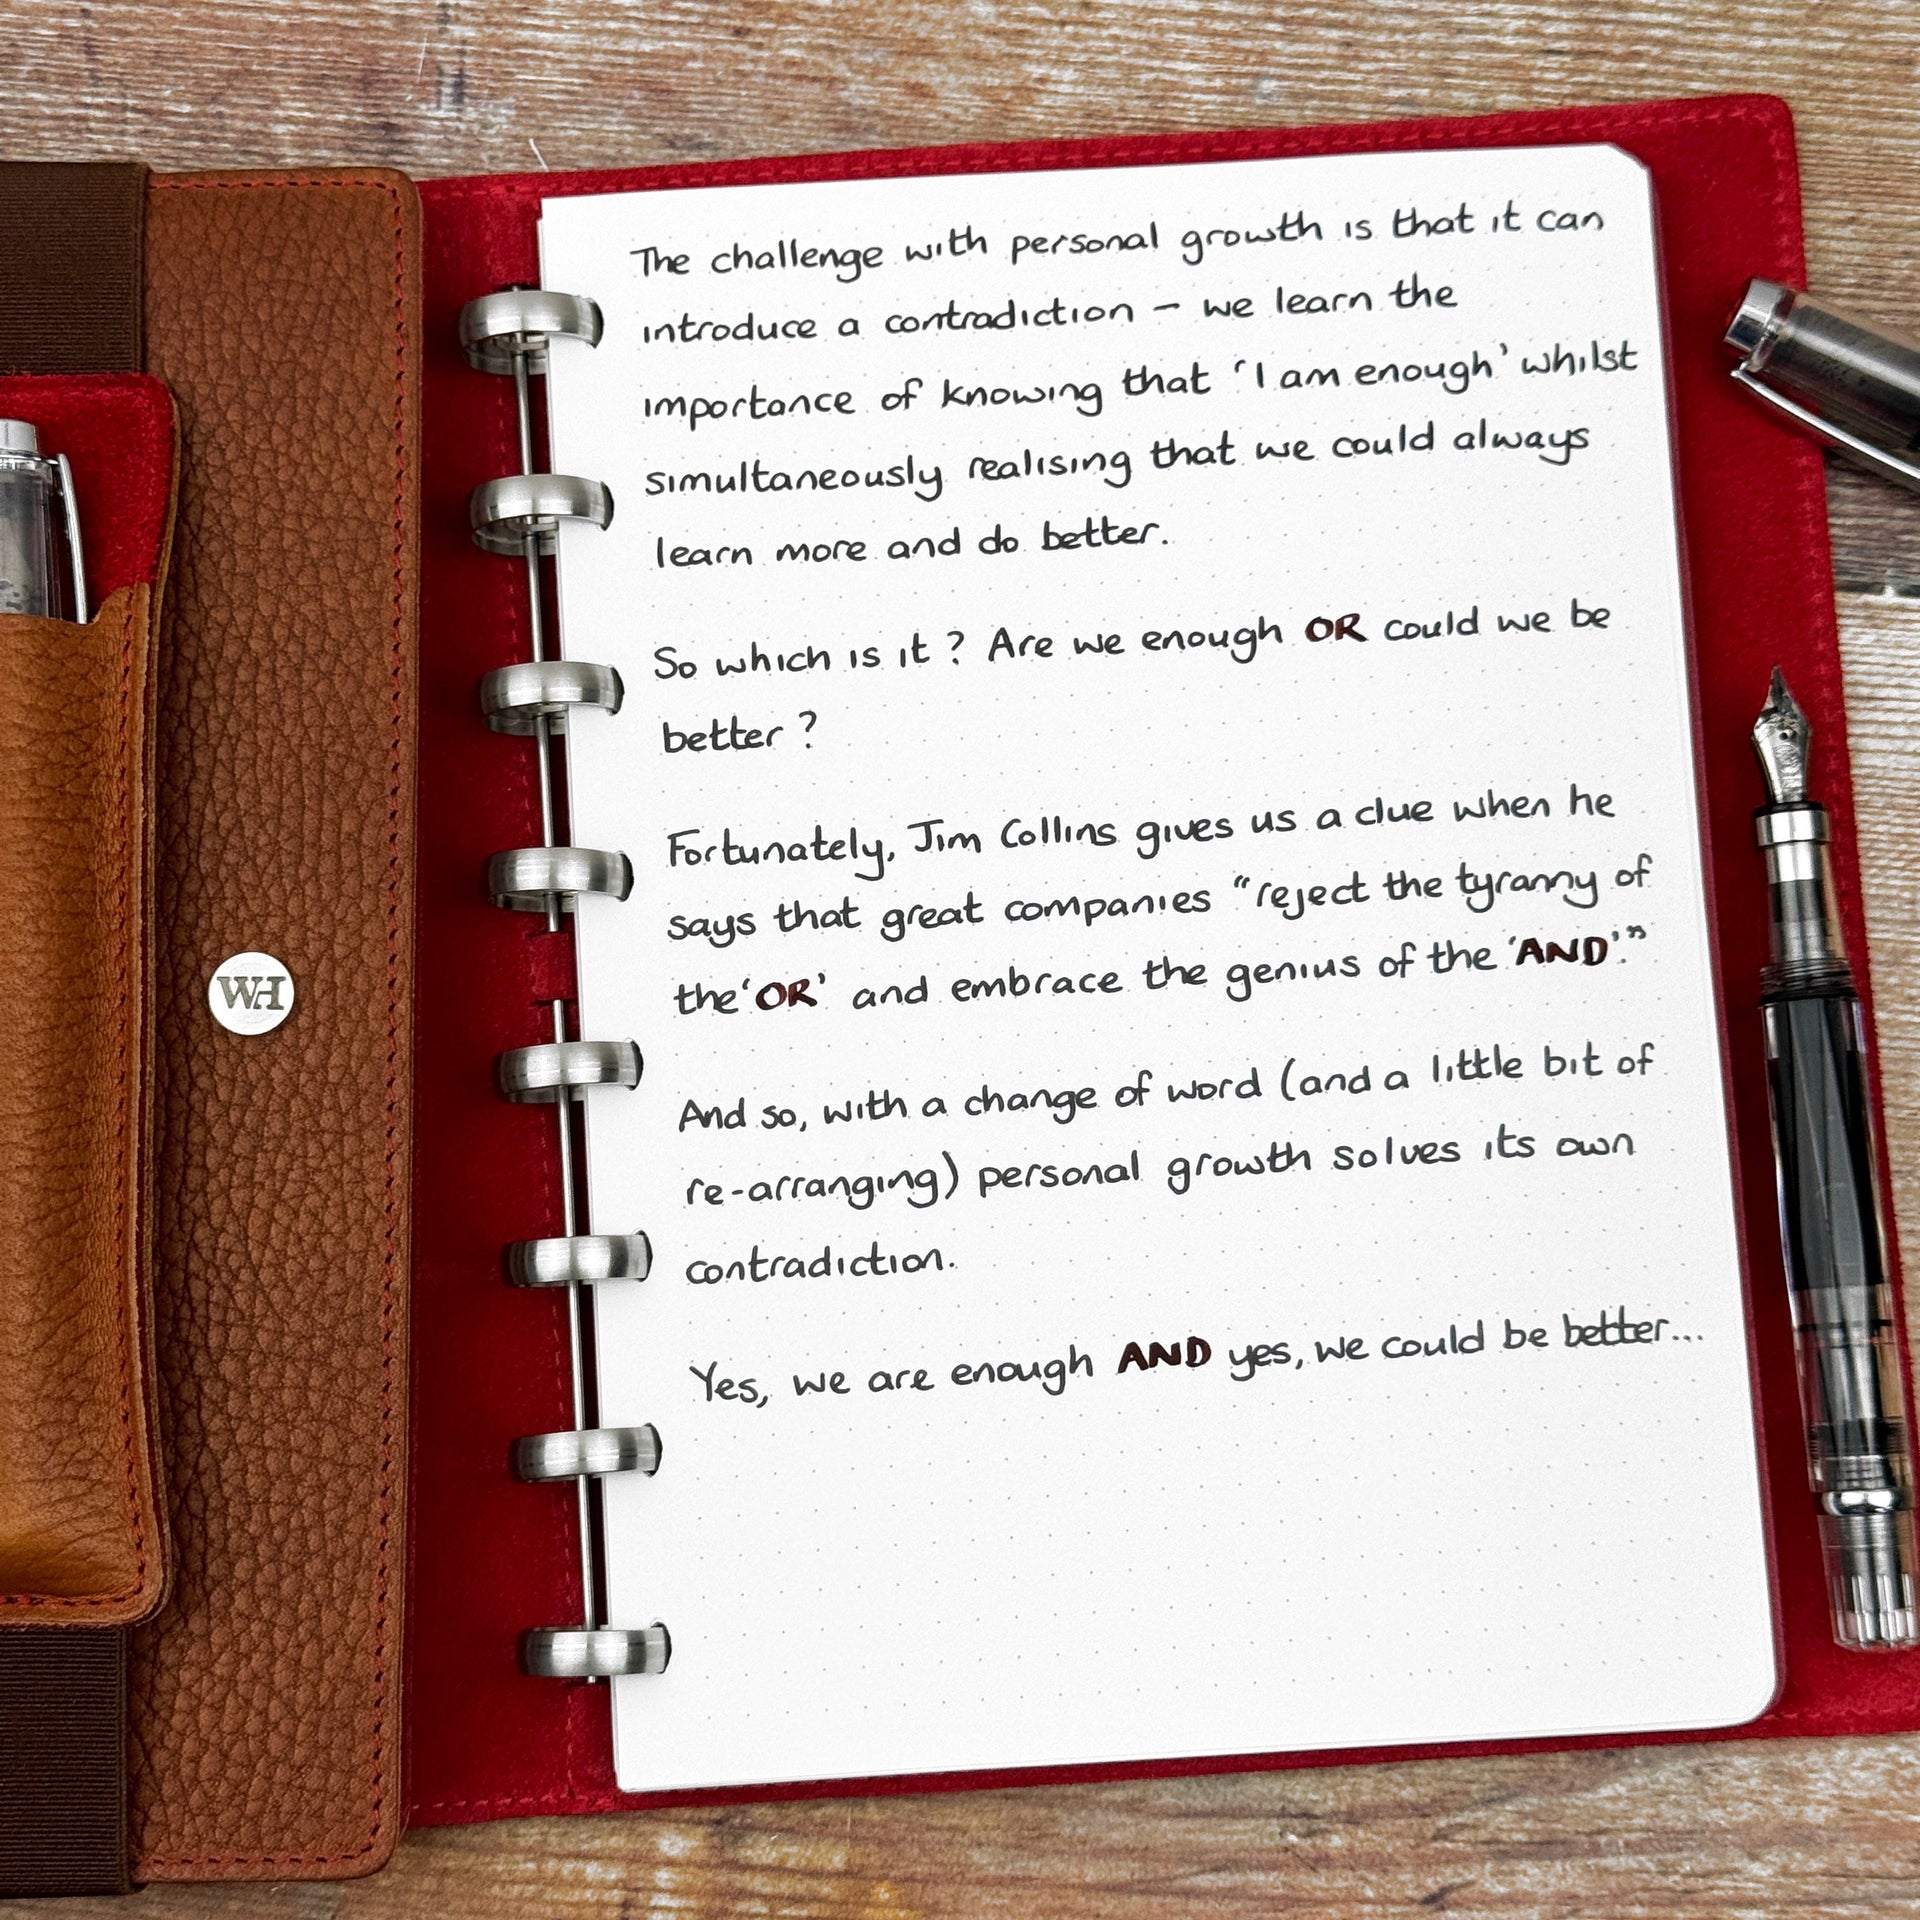 The challenge with personal growth is that it can
introduce a contradiction – we learn the
importance of knowing that 'I am enough' whilst
simultaneously realising that we could always
learn more and do better.
So which is it? Are we enough OR could we be
better?
Fortunately, Jim Collins gives us a clue when he
says that great companies "reject the tyranny of
the 'OR' and embrace the genius of the 'AND'."
And so, with a change of word (and a little bit of
re-arranging) personal growth solves its own
contradiction.
Yes, we are enough AND yes, we could be better...
WH